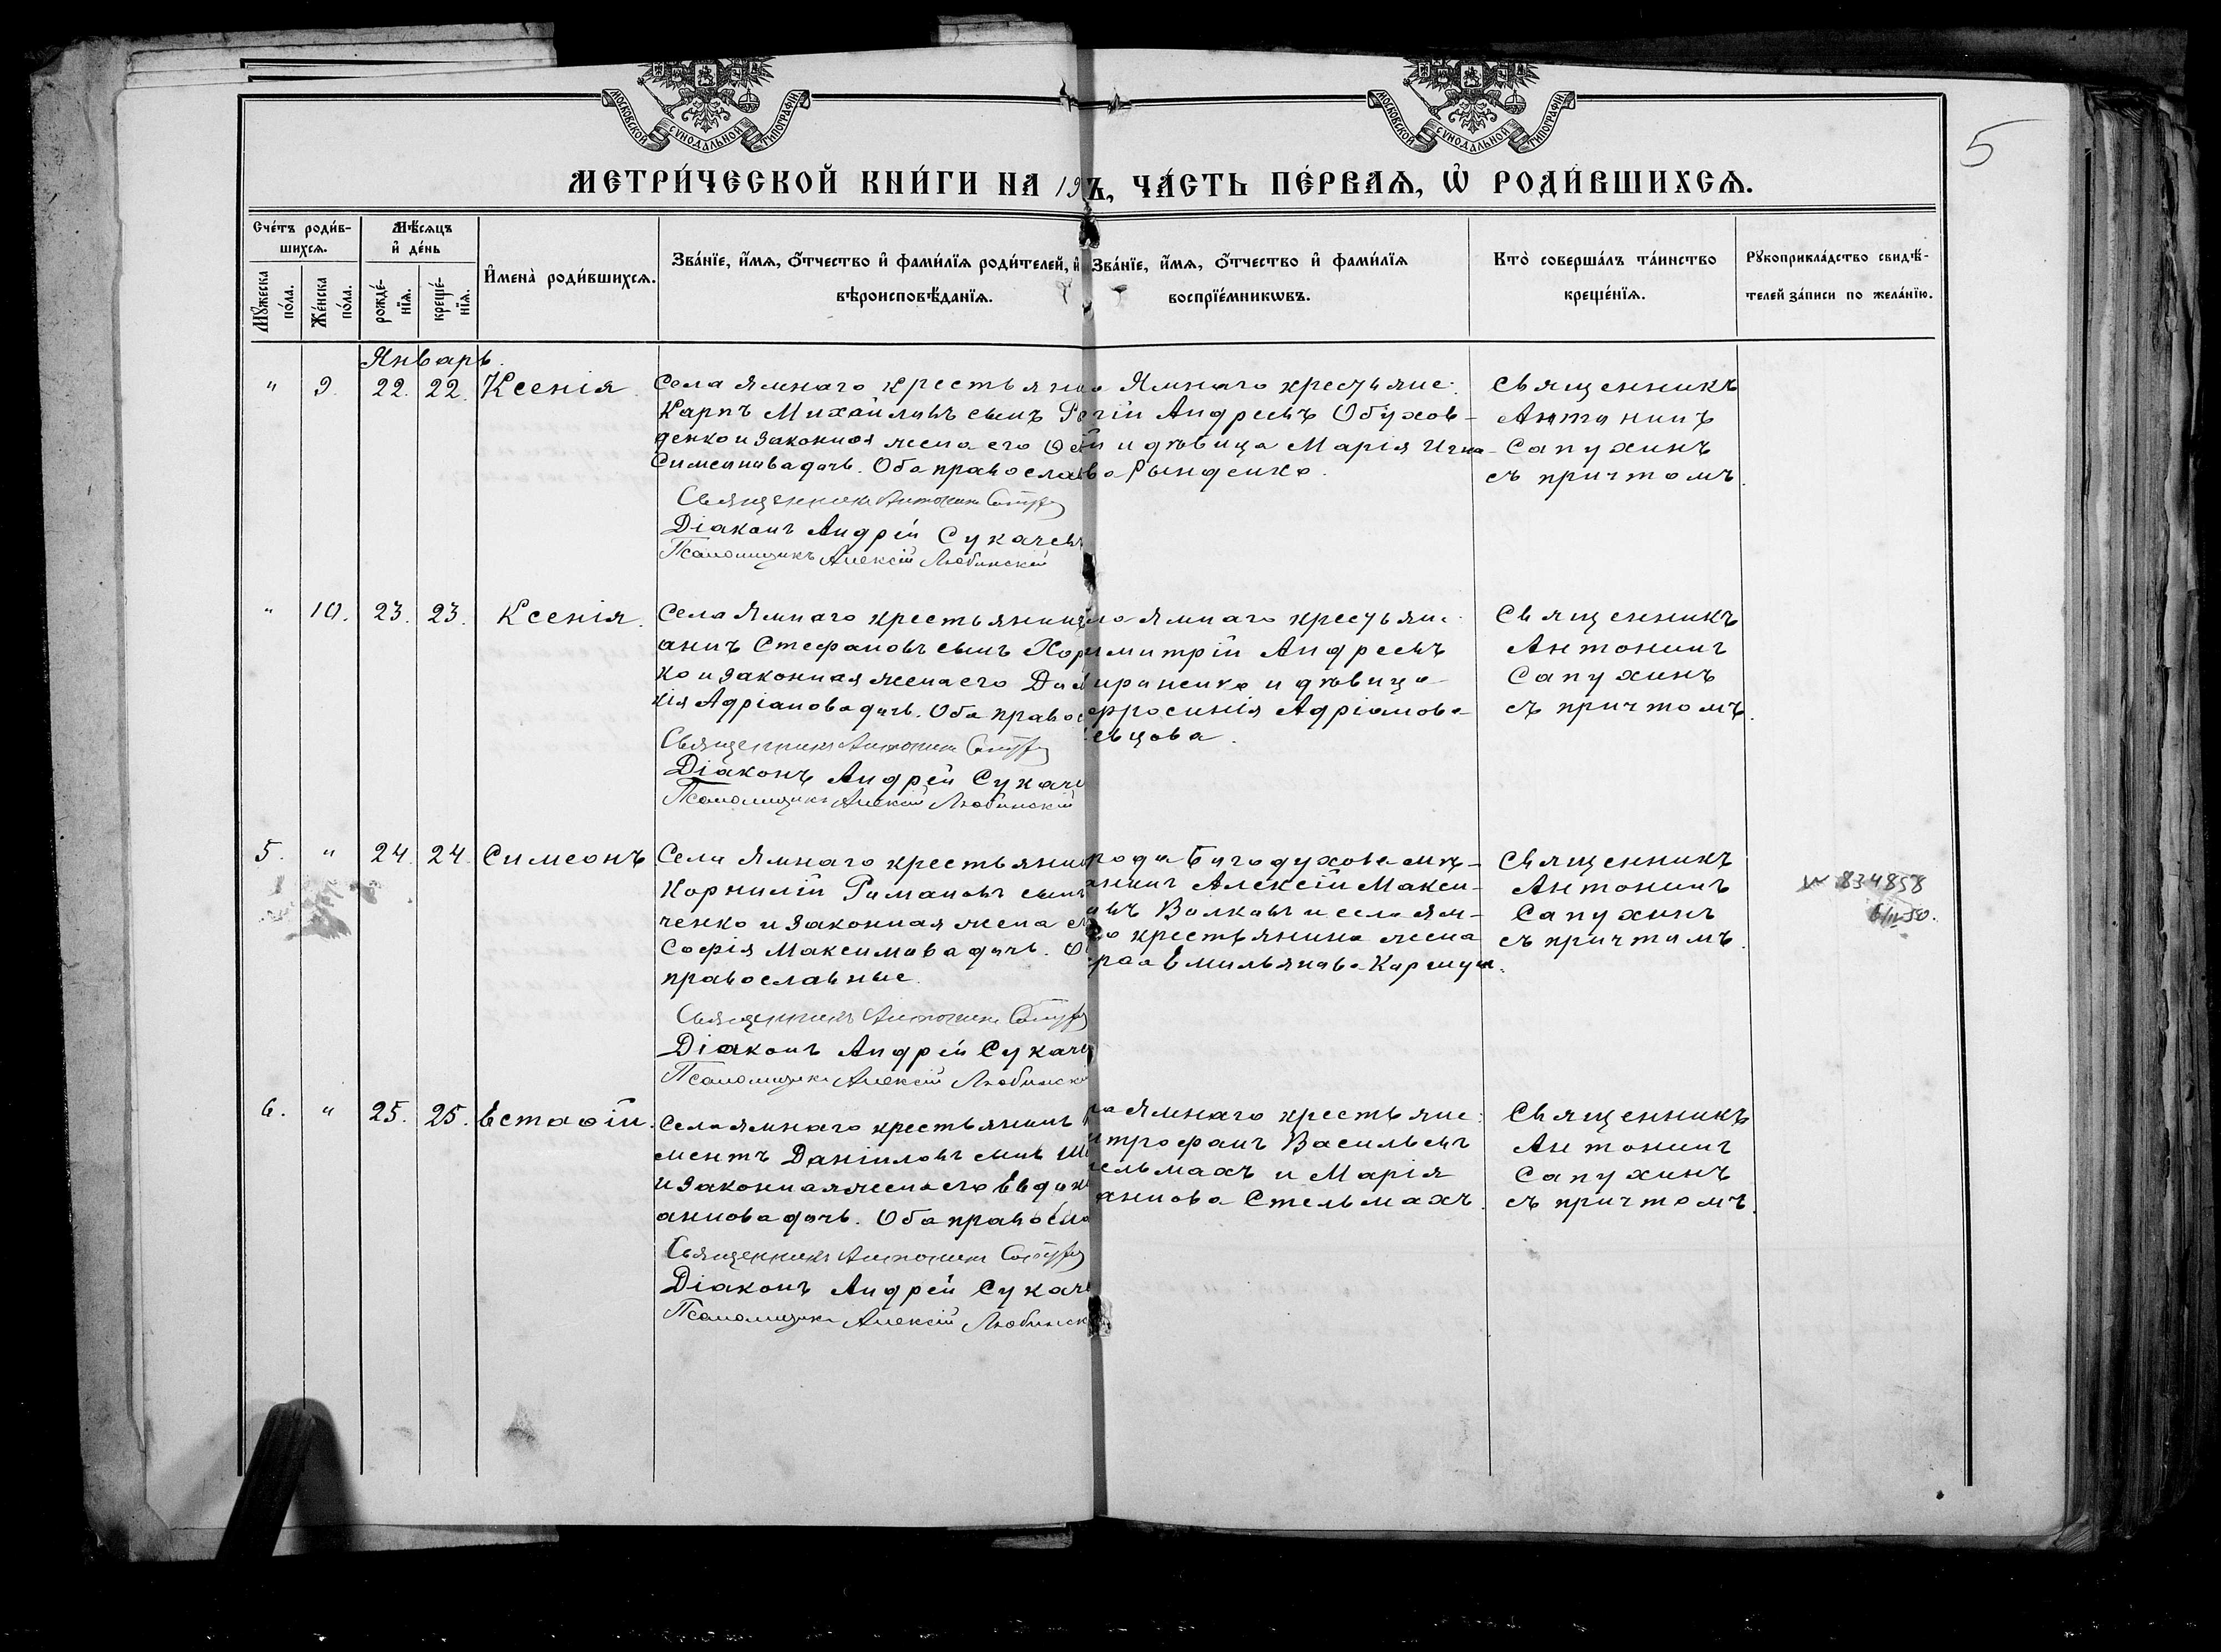 МОСКОВСКОЙ СѴНОДАЛЬНОЙ ТИПОГРАФІИ
МОСКОВСКОЙ СѴНОДАЛЬНОЙ ТИПОГРАФІИ
5
МЕТРИ́ЧЕСКОЙ КНИ́ГИ НА 19
Ъ, ЧА́СТЬ ПЕ́РВАѦ, Ѡ РОДИ́ВШИХСѦ.
Сче́тъ роди́в-
шихсѧ.
Мꙋ́жеска
по́ла.
Же́нска
по́ла.
Мѣ́сѧцъ
и҆ де́нь
рожде́-
нїѧ.
креще́-
нїѧ.
И҆мена̀ роди́вшихсѧ.
Зва́нїе, и҆́мѧ, ѻ҆́тчество и҆ фами́лїѧ роди́телей, и҆
вѣроисповѣ́данїѧ.
Зва́нїе, и҆́мѧ, ѻ҆́тчество и҆ фами́лїѧ
воспрїе́мникѡвъ.
Кто̀ соверша́лъ та́инство
креще́нїѧ.
Рꙋкоприкла́дство свидѣ́-
телей за́писи по жела́нїю.
Январь
" 9. 22. 22. Ксенія.
Села Ямнаго крестьяни
Карпъ Михайловъ сынъ
денко и законная жена его
Симеонова дочь. Оба православ
Священникъ Антонинъ
Діаконъ Андрей Сукачевъ
Псаломщикъ Алексій Любинскій
Ямнаго крестьяне:
гій Андреевъ Обухов-
й и дѣвица Марія Игна-
Рынденко.
Священникъ
Антонинъ
Сапухинъ
съ причтомъ.
" 10. 23. 23. Ксенія.
Села Ямнаго крестьянинъ
анъ Стефановъ сынъ Хор
ко и законная жена его
кія Адріанова дочь. Оба право
Священникъ Антонинъ
Діаконъ Андрей Сукаче
Псаломщикъ Алексій Любинскій
ла Ямнаго крестьяне:
имитрій Андреевъ
ираненко и дѣвица
фросинія Адріанова
евцова.
Священникъ
Антонинъ
Сапухинъ
съ причтомъ.
5. " 24. 24. Симеонъ
Села Ямнаго крестьянин
Корнилій Романовъ сынъ
ченко и законная жена
Софія Максимова дочь.
православные.
Священникъ Антонинъ
Діаконъ Андрей Сукаче
Псаломщикъ Алексій Любинскі
рода Богодухова мѣ-
анинъ Алексій Макси-
овъ Волковъ и села Ям-
го крестьянина жена
Емильянова
Священникъ
Антонинъ
Сапухинъ
съ причтомъ.
834858
6. " 25. 25. Естафій.
Села Ямнаго крестьянинъ
ментъ Даніиловъ сынъ
и законная жена его Евдок
анова дочь. Оба правосла
Священникъ Антонинъ
Діаконъ Андрей Сукаче
Псаломщикъ Алексій Любинск
ла Ямнаго крестьяне:
итрофанъ Васильевъ
ельмахъ и Марія
анова Стельмахъ.
Священникъ
Антонинъ
Сапухинъ
съ причтомъ.